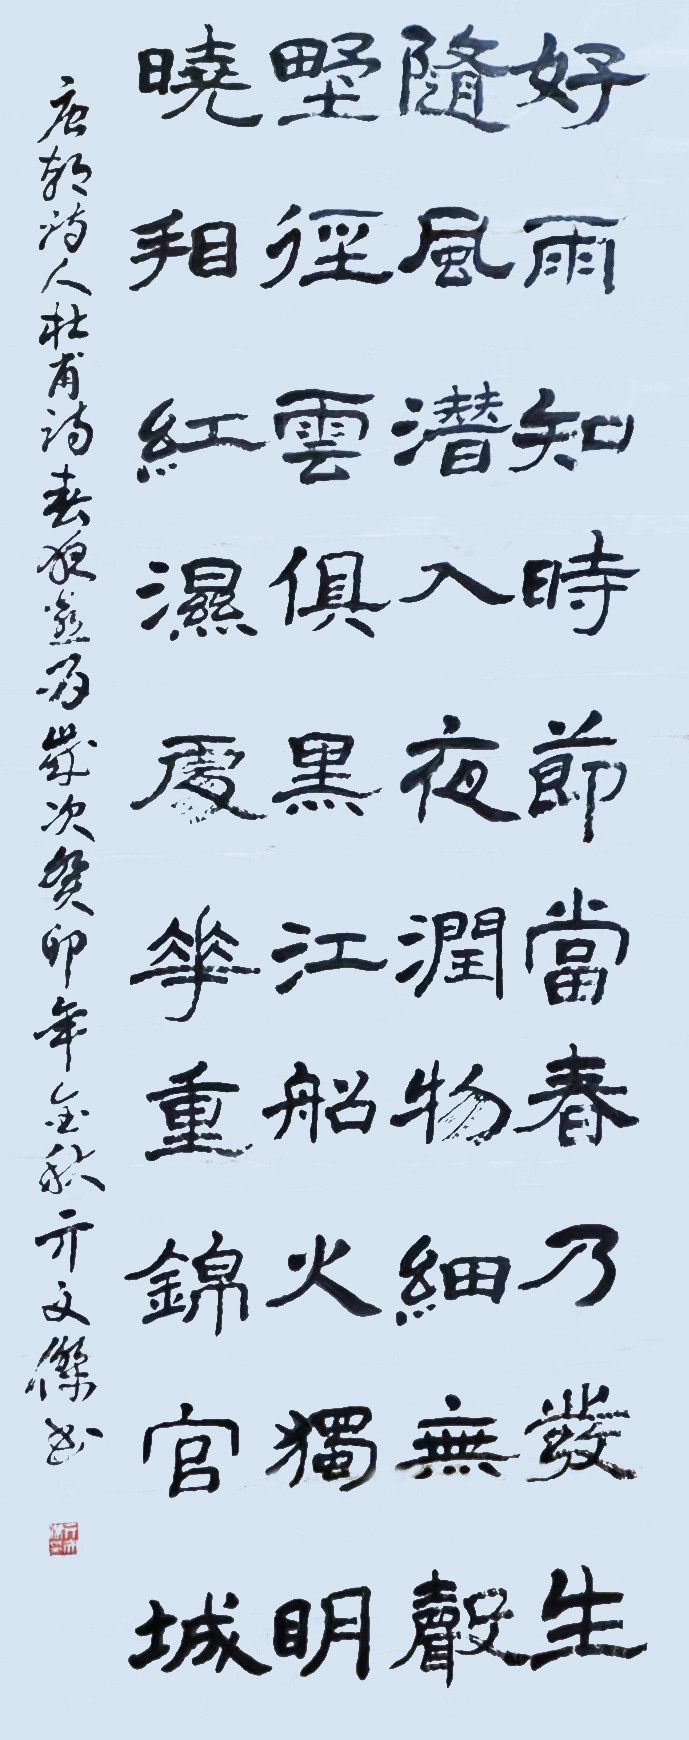 好雨知時節當春乃發生
隨風潛入夜潤物細無聲
野徑雲俱黑江船火獨明
曉相紅濕處華重錦官城
唐朝诗人杜甫诗春夜喜雨歲次癸卯年金秋亓文傑书